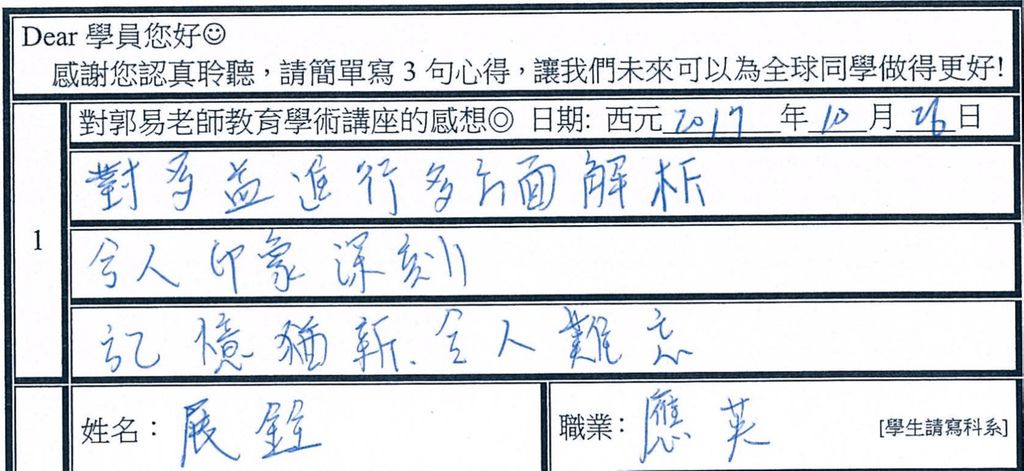 Dear 學員您好☺
感謝您認真聆聽，請簡單寫 3 句心得，讓我們未來可以為全球同學做得更好!
對郭易老師教育學術講座的感想◎ 日期: 西元 2017 年 10 月 26 日
對多益進行多方面解析
1
令人印象深刻
記憶猶新、令人難忘
姓名： 展銓 職業： 應英 [學生請寫科系]